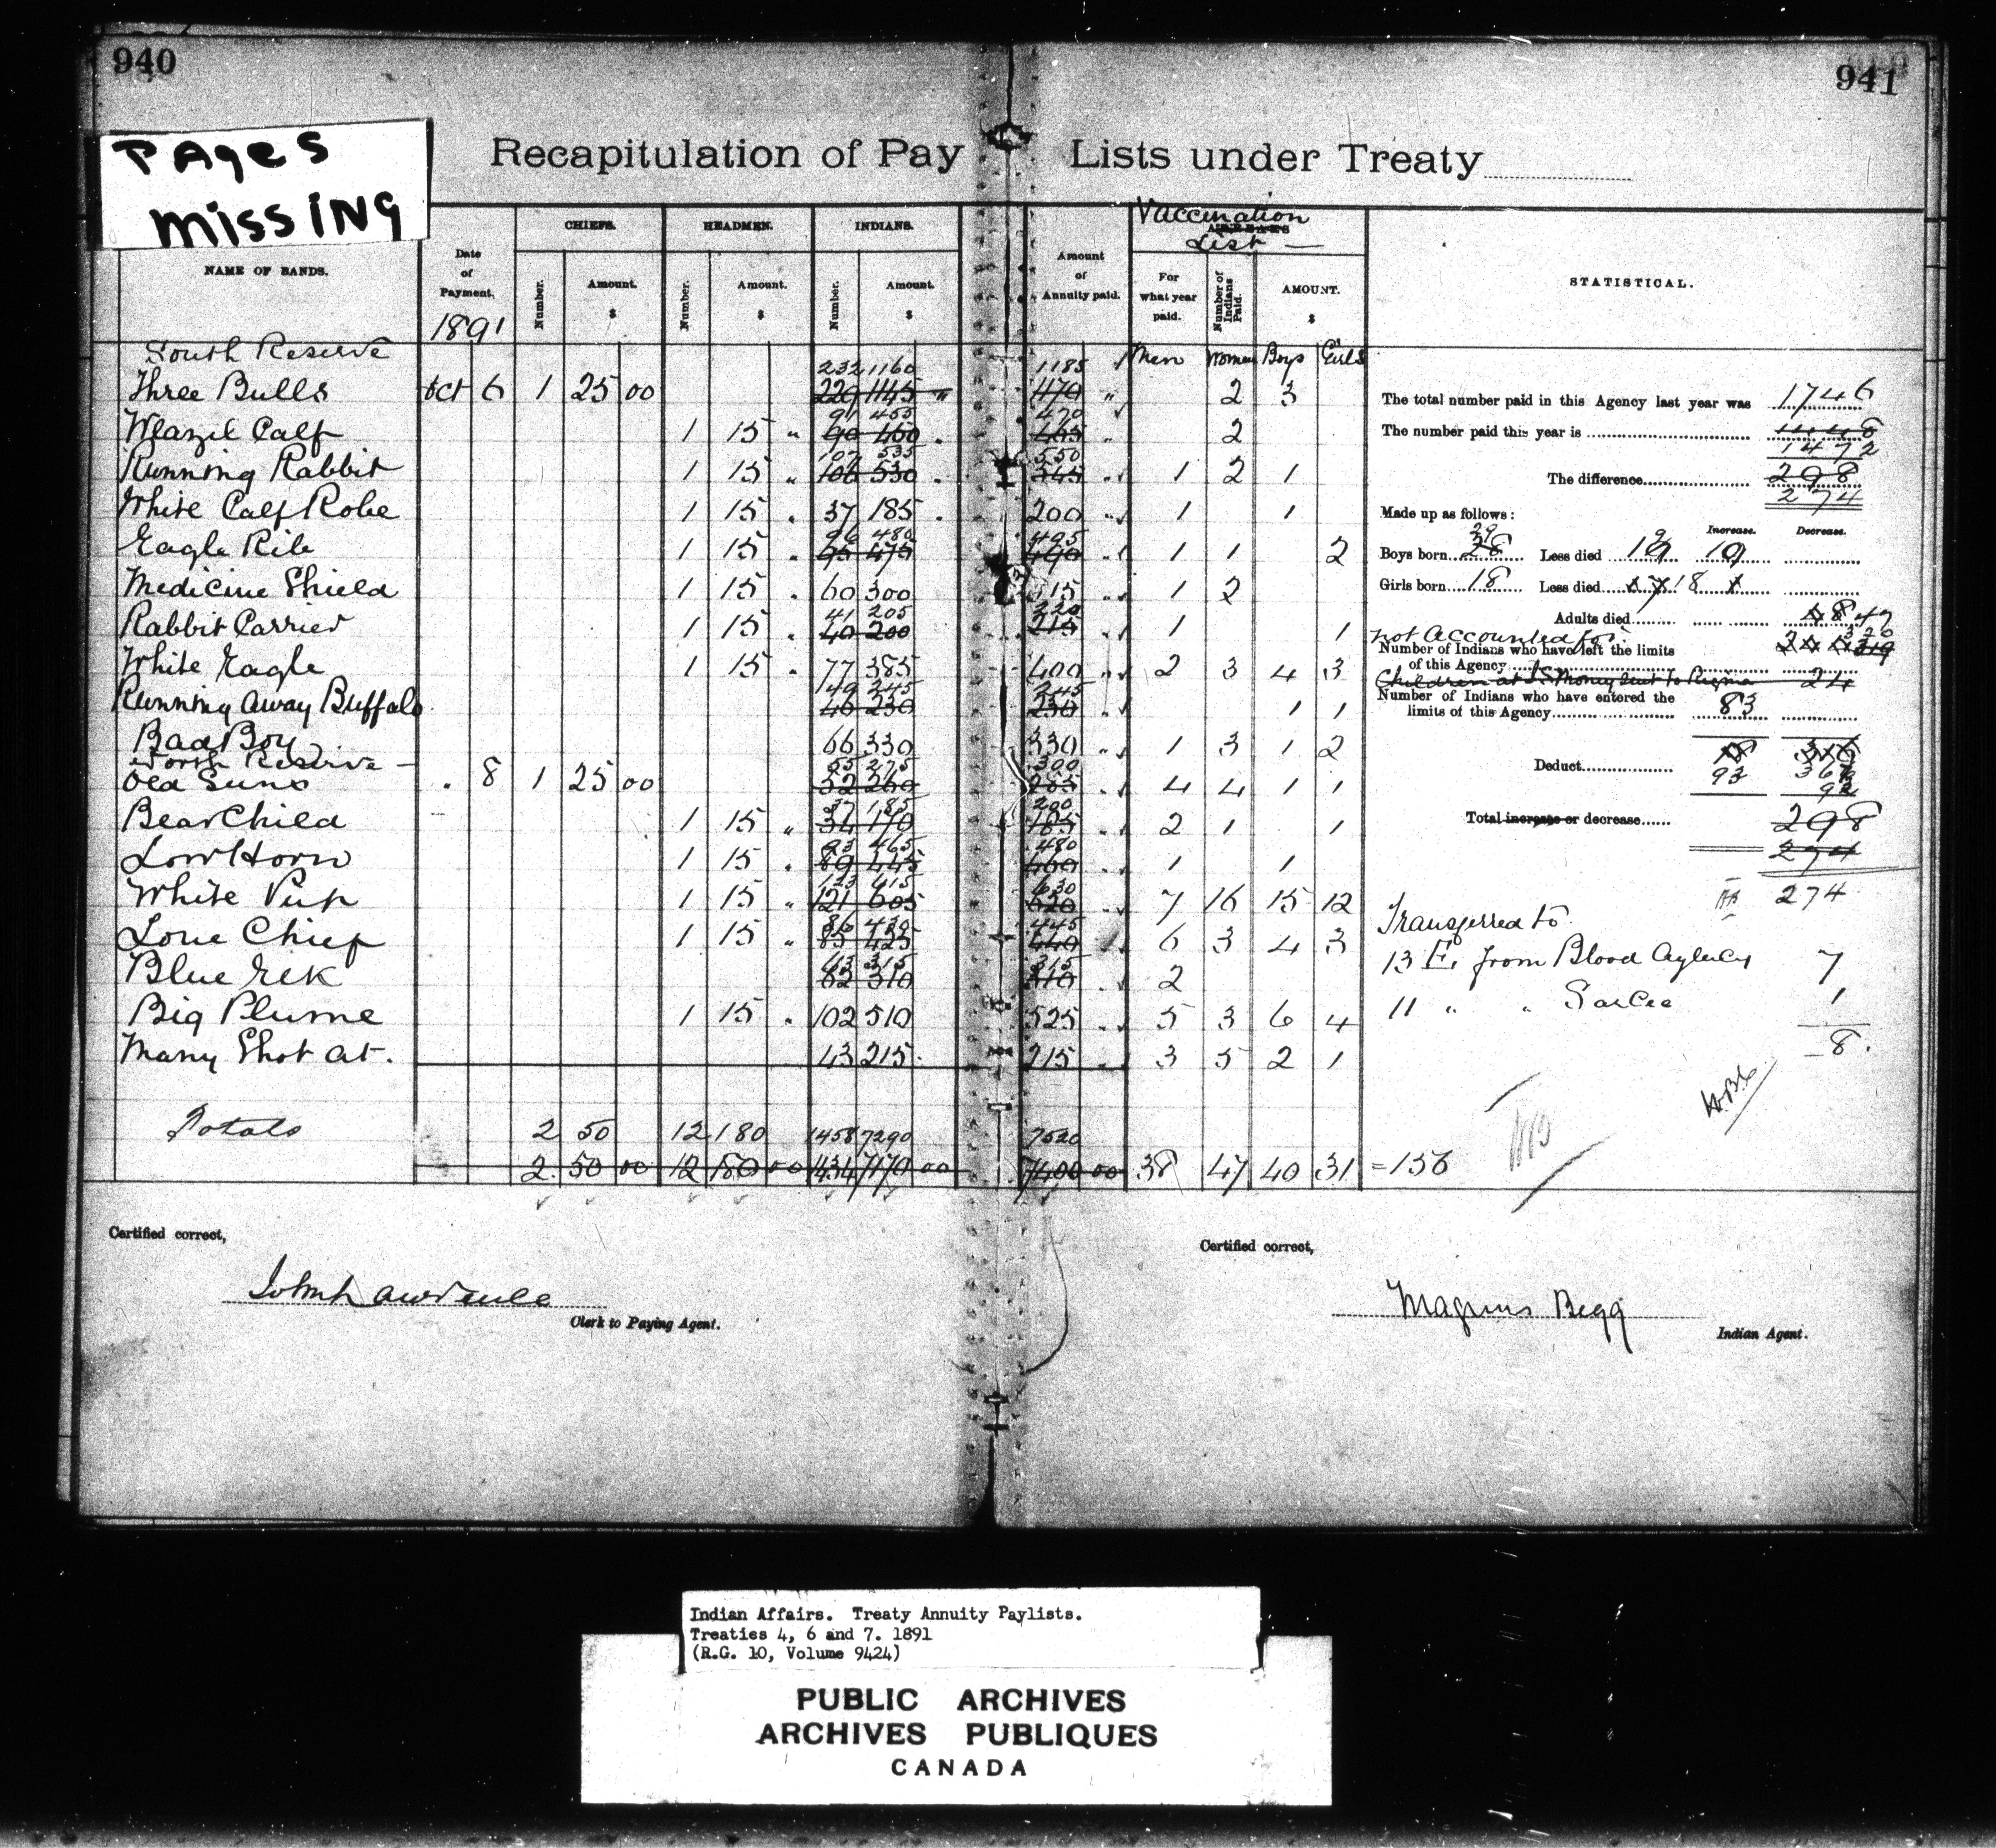 940
941
PAges
missING
Recapitulation of Pay Lists under Treaty
NAME OF BANDS. Date of Payment. CHIEFS. Number. Amount. $ HEADMEN. Number. Amount. $ INDIANS. Number. Amount. $ Amount of Annuity paid. Vaccination List — ARREARS For what year paid. Number of Indians Paid. AMOUNT. $ STATISTICAL.
1891
South Reserve Men Women Boys Girls
232 1160 1185
Three Bulls Oct 6 1 25 00 229 1145 " 1170 " 2 3
91 455 470
Weazel Calf 1 15 " 90 450 465 " 2
107 535 550
Running Rabbit 1 15 " 106 530 545 " 1 2 1
White Calf Robe 1 15 " 37 185 200 " 1 1
96 480 495
Eagle Rib 1 15 " 95 475 490 " 1 1 2
Medicine Shield 1 15 " 60 300 315 " 1 2
41 205 220
Rabbit Carrier 1 15 " 40 200 215 " 1 1
White Eagle 1 15 " 77 385 400 " 2 3 4 3
49 245 245
Running Away Buffalo 46 230 230 " 1 1
Bad Boy 66 330 330 " 1 3 1 2
North Reserve —
55 275 300
Old Suns " 8 1 25 00 52 260 285 " 4 4 1 1
37 185 200
Bear Child 1 15 " 34 170 185 " 2 1 1
93 465 480
Low Horn 1 15 " 89 445 460 " 1 1
123 615 630
White Pup 1 15 " 121 605 620 " 7 16 15 12
86 430 445
Lone Chief 1 15 " 85 425 440 " 6 3 4 3
63 315 315
Blue Elk 62 310 310 2
Big Plume 1 15 " 102 510 525 " 5 3 6 4
Many Shot at. 43 215 215 " 3 5 2 1
Totals 2 50 12 180 1458 7290 7520
2 50 00 12 180 00 1434 7170 00 7400 00 38 47 40 31 =156
The total number paid in this Agency last year was 1746
The number paid this year is 1448
1472
The difference 298
274
Made up as follows: Increase. Decrease.
29
Boys born 28 Less died 19 10
Girls born 18 Less died 17 18 1
Adults died 48 47
not Accounted for
320
Number of Indians who have left the limits 319
of this Agency
Children at I.S. Money Sent to Regina 24
Number of Indians who have entered the
limits of this Agency 83
Deduct
93 367
93
Total increase or decrease 298
274
274
Transferred to
13 E, from Blood Agency 7
11 " " Sarcee 1
8.
Certified correct,
John Lawrence
Clerk to Paying Agent.
Certified correct,
Magnus Begg
Indian Agent.
Indian Affairs. Treaty Annuity Paylists.
Treaties 4, 6 and 7. 1891
(R.G. 10, Volume 9424)
PUBLIC ARCHIVES
ARCHIVES PUBLIQUES
CANADA